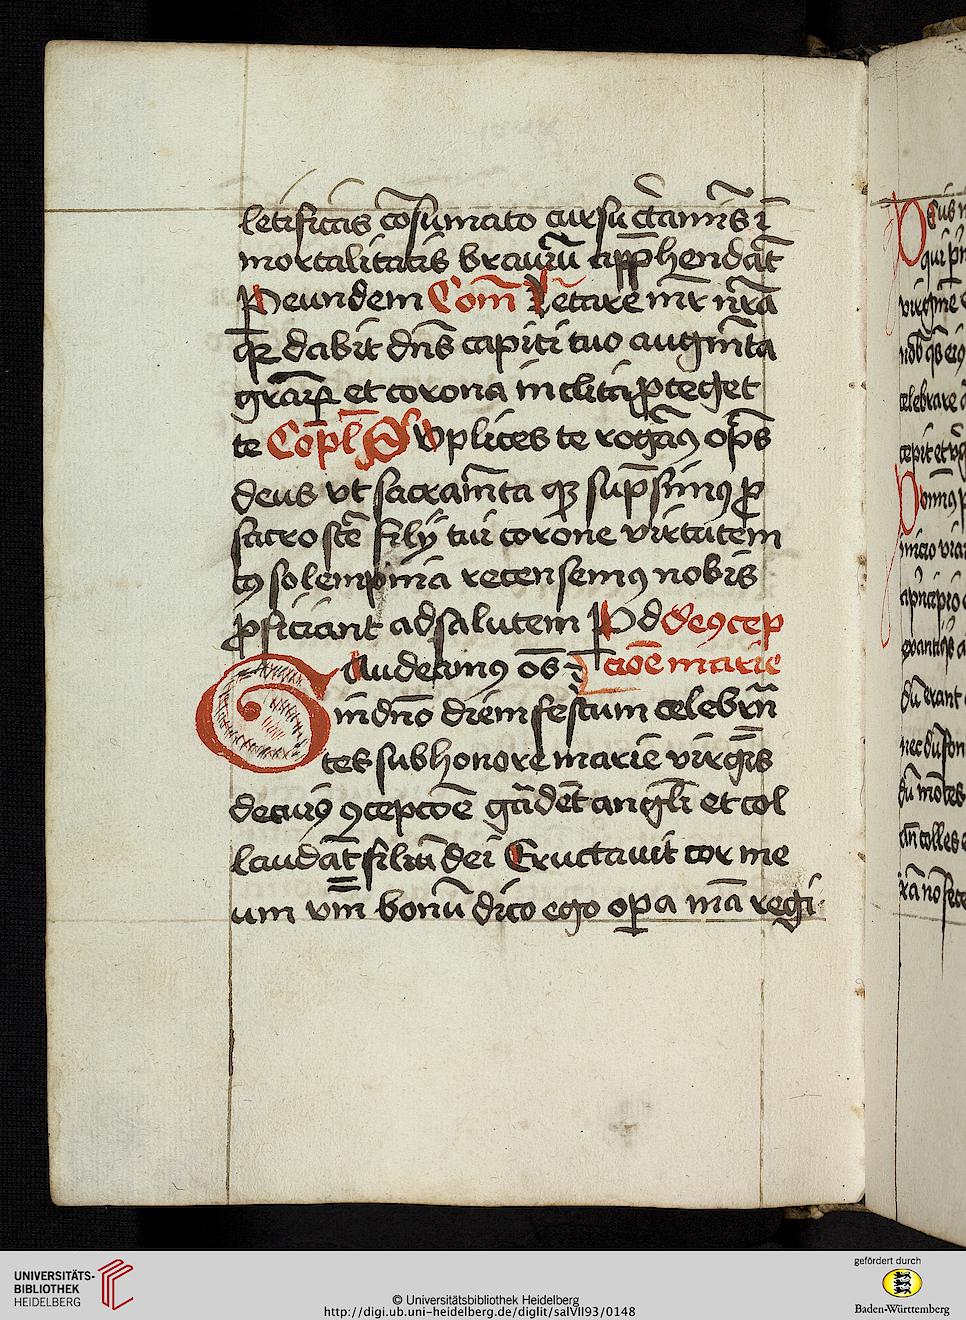 letificas cõsũmato cursu c̃taminis ĩ
mortalitatis brauiũ app̃hendãt
Peundem Com̃ Letare mr̃ nr̃a
qr dabit dñs capiti tuo augm̃ta
gr̃aꝝ et corona inclita ꝓteget
te Cõpl̃ Supplices te rogam9 op̃s
deus vt sacram̃ta q̃ sup̃sim9 ꝓ
sacroscẽ filij tui corone virtutem
c9 solempnia recensem9 nobis
ꝓficiant ad salutem Ad De 9cep
Gaudeam9 oẽs cioẽ marie
in dño diem festum celebrñ
tes sub honore marie virgĩs
de cui9 9cepcõe gãdẽt angl̃i et col
laudãt filiũ dei Eructauit cor me
um vm̃ bonũ dico ego oꝑa mã regi
UNIVERSITÄTS-
BIBLIOTHEK
HEIDELBERG
© Universitätsbibliothek Heidelberg
http://digi.ub.uni-heidelberg.de/diglit/salVII93/0148
gefördert durch
Baden-Württemberg